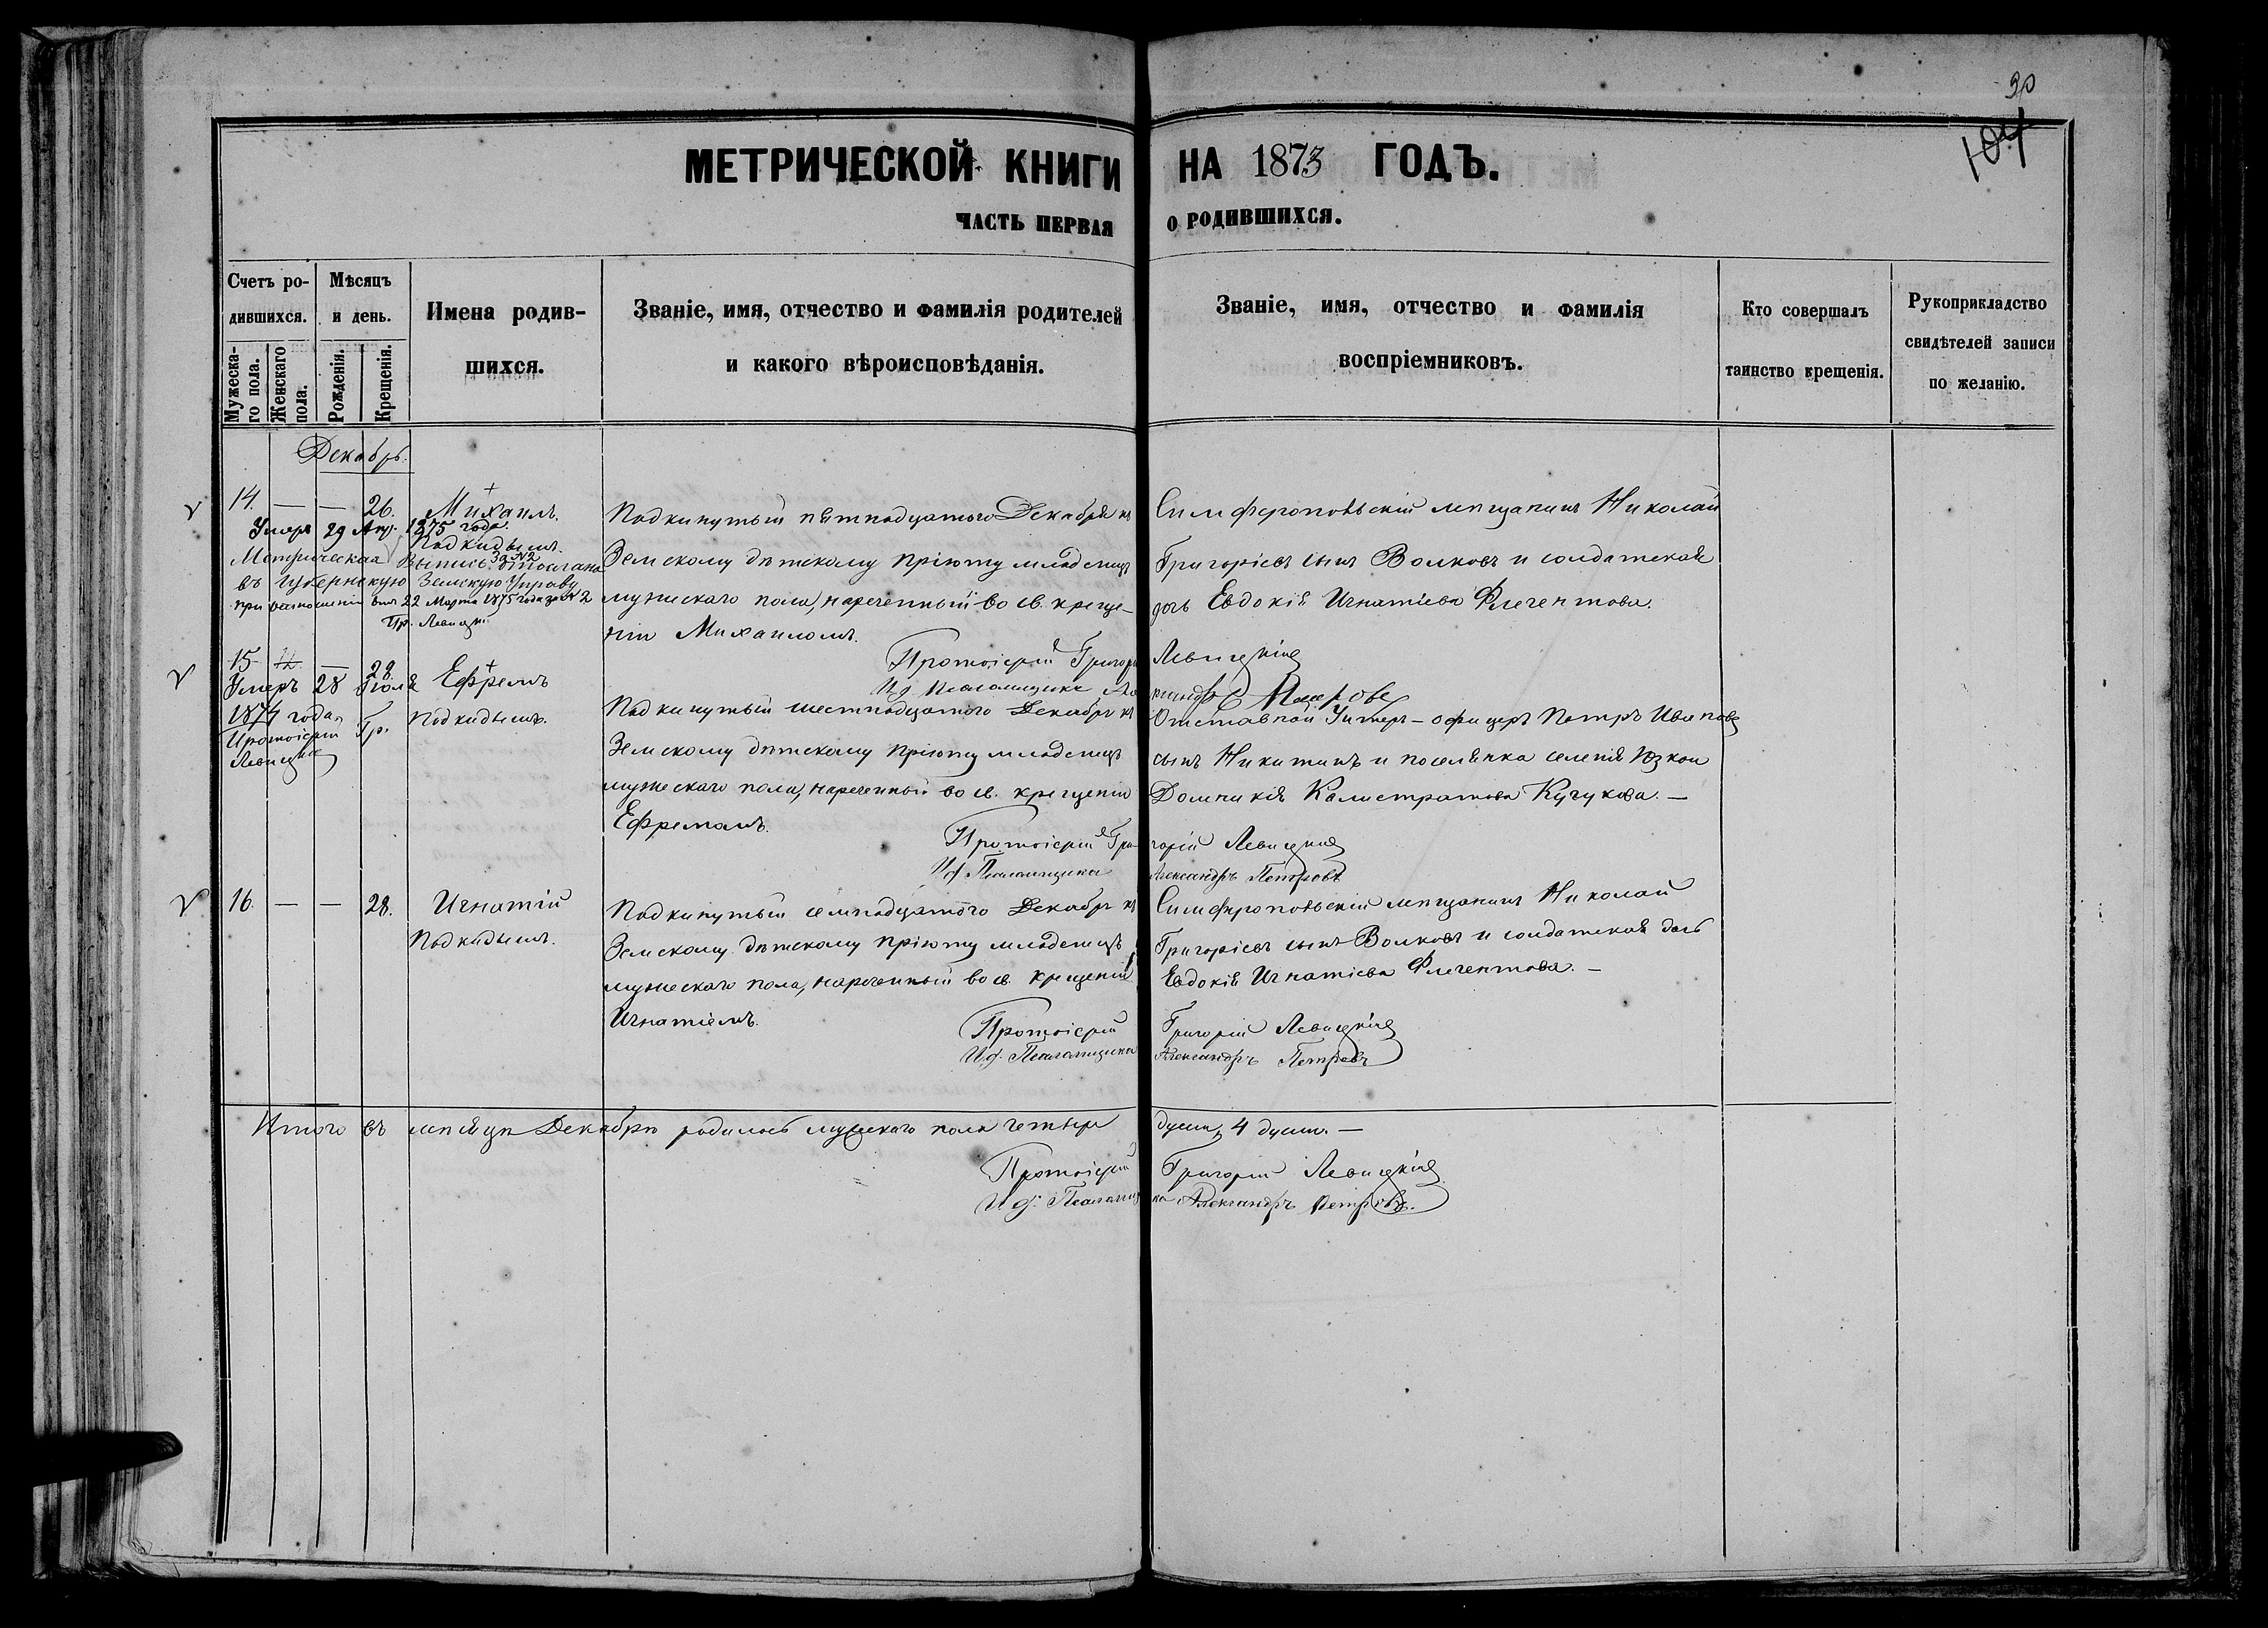 30
104
МЕТРИЧЕСКОЙ КНИГИ НА 1873 ГОДЪ.
ЧАСТЬ ПЕРВАЯ О РОДИВШИХСЯ.
Счетъ ро-
дившихся.
Мужеска-
го пола.
Женскаго
пола.
Мѣсяцъ
и день.
Рожденія.
Крещенія.
Имена родив-
шихся.
Званіе, имя, отчество и фамилія родителей
и какого вѣроисповѣданія.
Званіе, имя, отчество и фамилія
воспріемниковъ.
Кто совершалъ
таинство крещенія.
Рукоприкладство
свидѣтелей записи
по желанію.
Декабрь.
14. — — 26. Михаилъ.
Умеръ 29 Апр. 1875 года.
Подкидышъ.
Метрическая Выпись за №2 послана
въ губернскую Земскую Управу
при отношеніи отъ 22 Марта 1875 года за № 2
Пр. Левицкій
Подкинутый пятнадцатого Декабря къ
Земскому дѣтскому пріюту младенецъ
мужескаго пола, нареченный во св. креще-
ніи Михаиломъ.
Симферопольскій мѣщанинъ Николай
Григорьевъ сынъ Волковъ и солдатская
дочь Евдокія Игнатіева Флегентова.
Протоіерей Григорій Левицкій
И д Псаломщика Александръ Петровъ
15 — 28. Ефремъ
Умеръ 28 Іюля
1874 года,
Протоіерей Гр.
Левицкій
Подкидышъ.
Подкинутый шестнадцатого Декабря къ
Земскому дѣтскому пріюту младенецъ
мужескаго пола, нареченный во св. крещеніи
Ефремомъ.
Отставной Унтеръ-офицеръ Петръ Ивановъ
сынъ Никитинъ и поселянка селенія Юзкои
Домникія Калистратова Кучукова. —
Протоіерей Григорій Левицкій
И д. Псаломщика Александръ Петровъ
16. — — 28. Игнатій
Подкидышъ.
Подкинутый семнадцатого Декабря къ
Земскому дѣтскому пріюту младенецъ
мужескаго пола, нареченный во св. крещеніи
Игнатіемъ.
Симферопольскій мѣщанинъ Николай
Григорьевъ сынъ Волковъ и солдатская дочь
Евдокія Игнатіева Флегентова. —
Протоіерей Григорій Левицкій
И д. Псаломщика Александръ Петровъ
Итого въ мѣсяцѣ Декабрѣ родилось мужескаго пола четыре души, 4 души. —
Протоіерей Григорій Левицкій
И д. Псаломщика Александръ Петровъ.